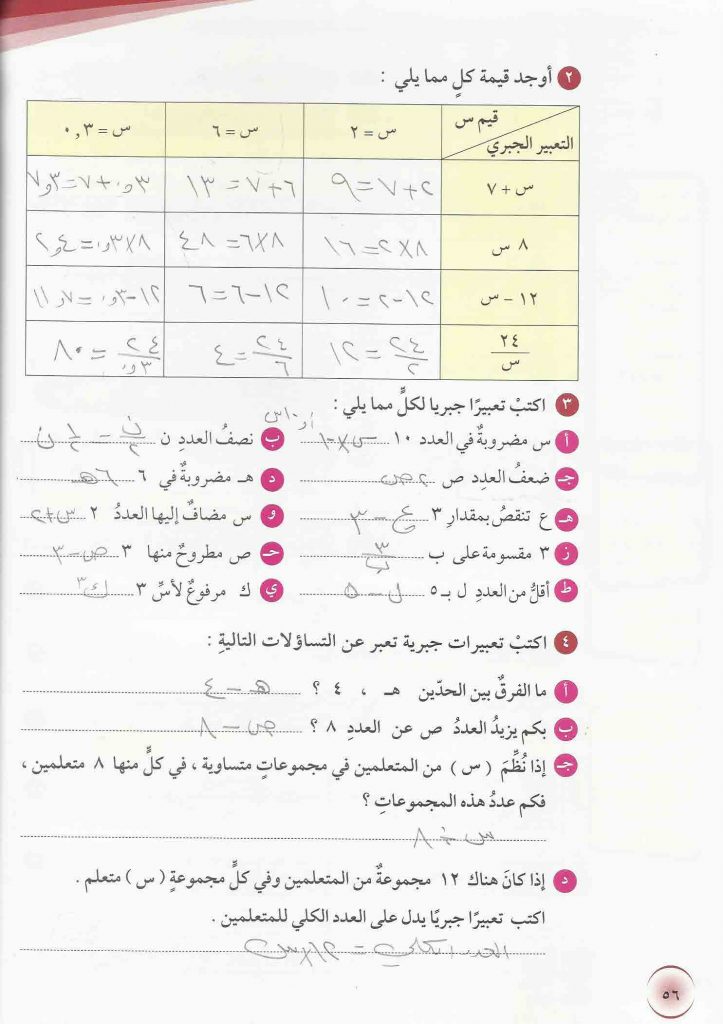 ٢ أوجد قيمة كلٍ مما يلي :
قيم س
التعبير الجبري
س = ٢ س = ٦ س = ٠,٣
س + ٧ ٢+٧=٩ ٦+٧=١٣ ٠,٣+٧=٧,٣
٨ س ٨×٢=١٦ ٨×٦=٤٨ ٨×٠,٣=٢,٤
١٢ - س ١٢-٢=١٠ ١٢-٦=٦ ١٢-٠,٣=١١,٧
٢٤/س ٢٤/٢=١٢ ٢٤/٦=٤ ٢٤/٠,٣=٨٠
٣ اكتبْ تعبيرًا جبريا لكلٍّ مما يلي :
أو ١٠س
أ س مضروبةٌ في العدد ١٠ س×١٠ ب نصفُ العددِ ن ن/٢ = ١/٢ ن
جـ ضعفُ العدد ص ٢ص د هـ مضروبةٌ في ٦ ٦هـ
هـ ع تنقصُ بمقدارِ ٣ ع - ٣ و س مضافٌ إليها العددُ ٢ س+٢
ز ٣ مقسومة على ب ٣/ب حـ ص مطروحٌ منها ٣ ص-٣
ط أقلُّ من العددِ ل بـ ٥ ل - ٥ ي ك مرفوعٌ لأسِّ ٣ ك٣
٤ اكتبْ تعبيرات جبرية تعبر عن التساؤلات التاليةِ :
أ ما الفرقٌ بين الحدّين هـ ، ٤ ؟ هـ - ٤
ب بكم يزيدُ العددُ ص عن العددِ ٨ ؟ ص - ٨
جـ إذا نُظِّمَ ( س ) من المتعلمين في مجموعاتٍ متساوية ، في كلٍّ منها ٨ متعلمين ،
فكم عددُ هذه المجموعاتِ ؟
س ÷ ٨
د إذا كانَ هناك ١٢ مجموعةٌ من المتعلمين وفي كلِّ مجموعةٍ ( س ) متعلم .
اكتب تعبيرًا جبريًا يدل على العدد الكلي للمتعلمين .
العدد الكلي = ١٢×س
٥٦